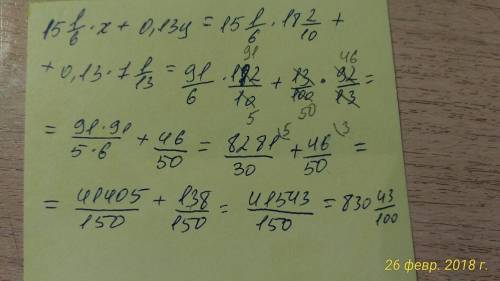 15 1/6 · x + 0,13y = 15 1/6 · 18 2/10 +
+ 0,13 · 7 1/13 = 91/6 · 182/10 + 13/100 · 92/13 =
91 5 50 46
= 91·91/5·6 + 46/50 = 8281/30 \5 + 46/50 \3 =
= 41405/150 + 138/150 = 41543/150 = 830 43/100
26 февр. 2018 г.